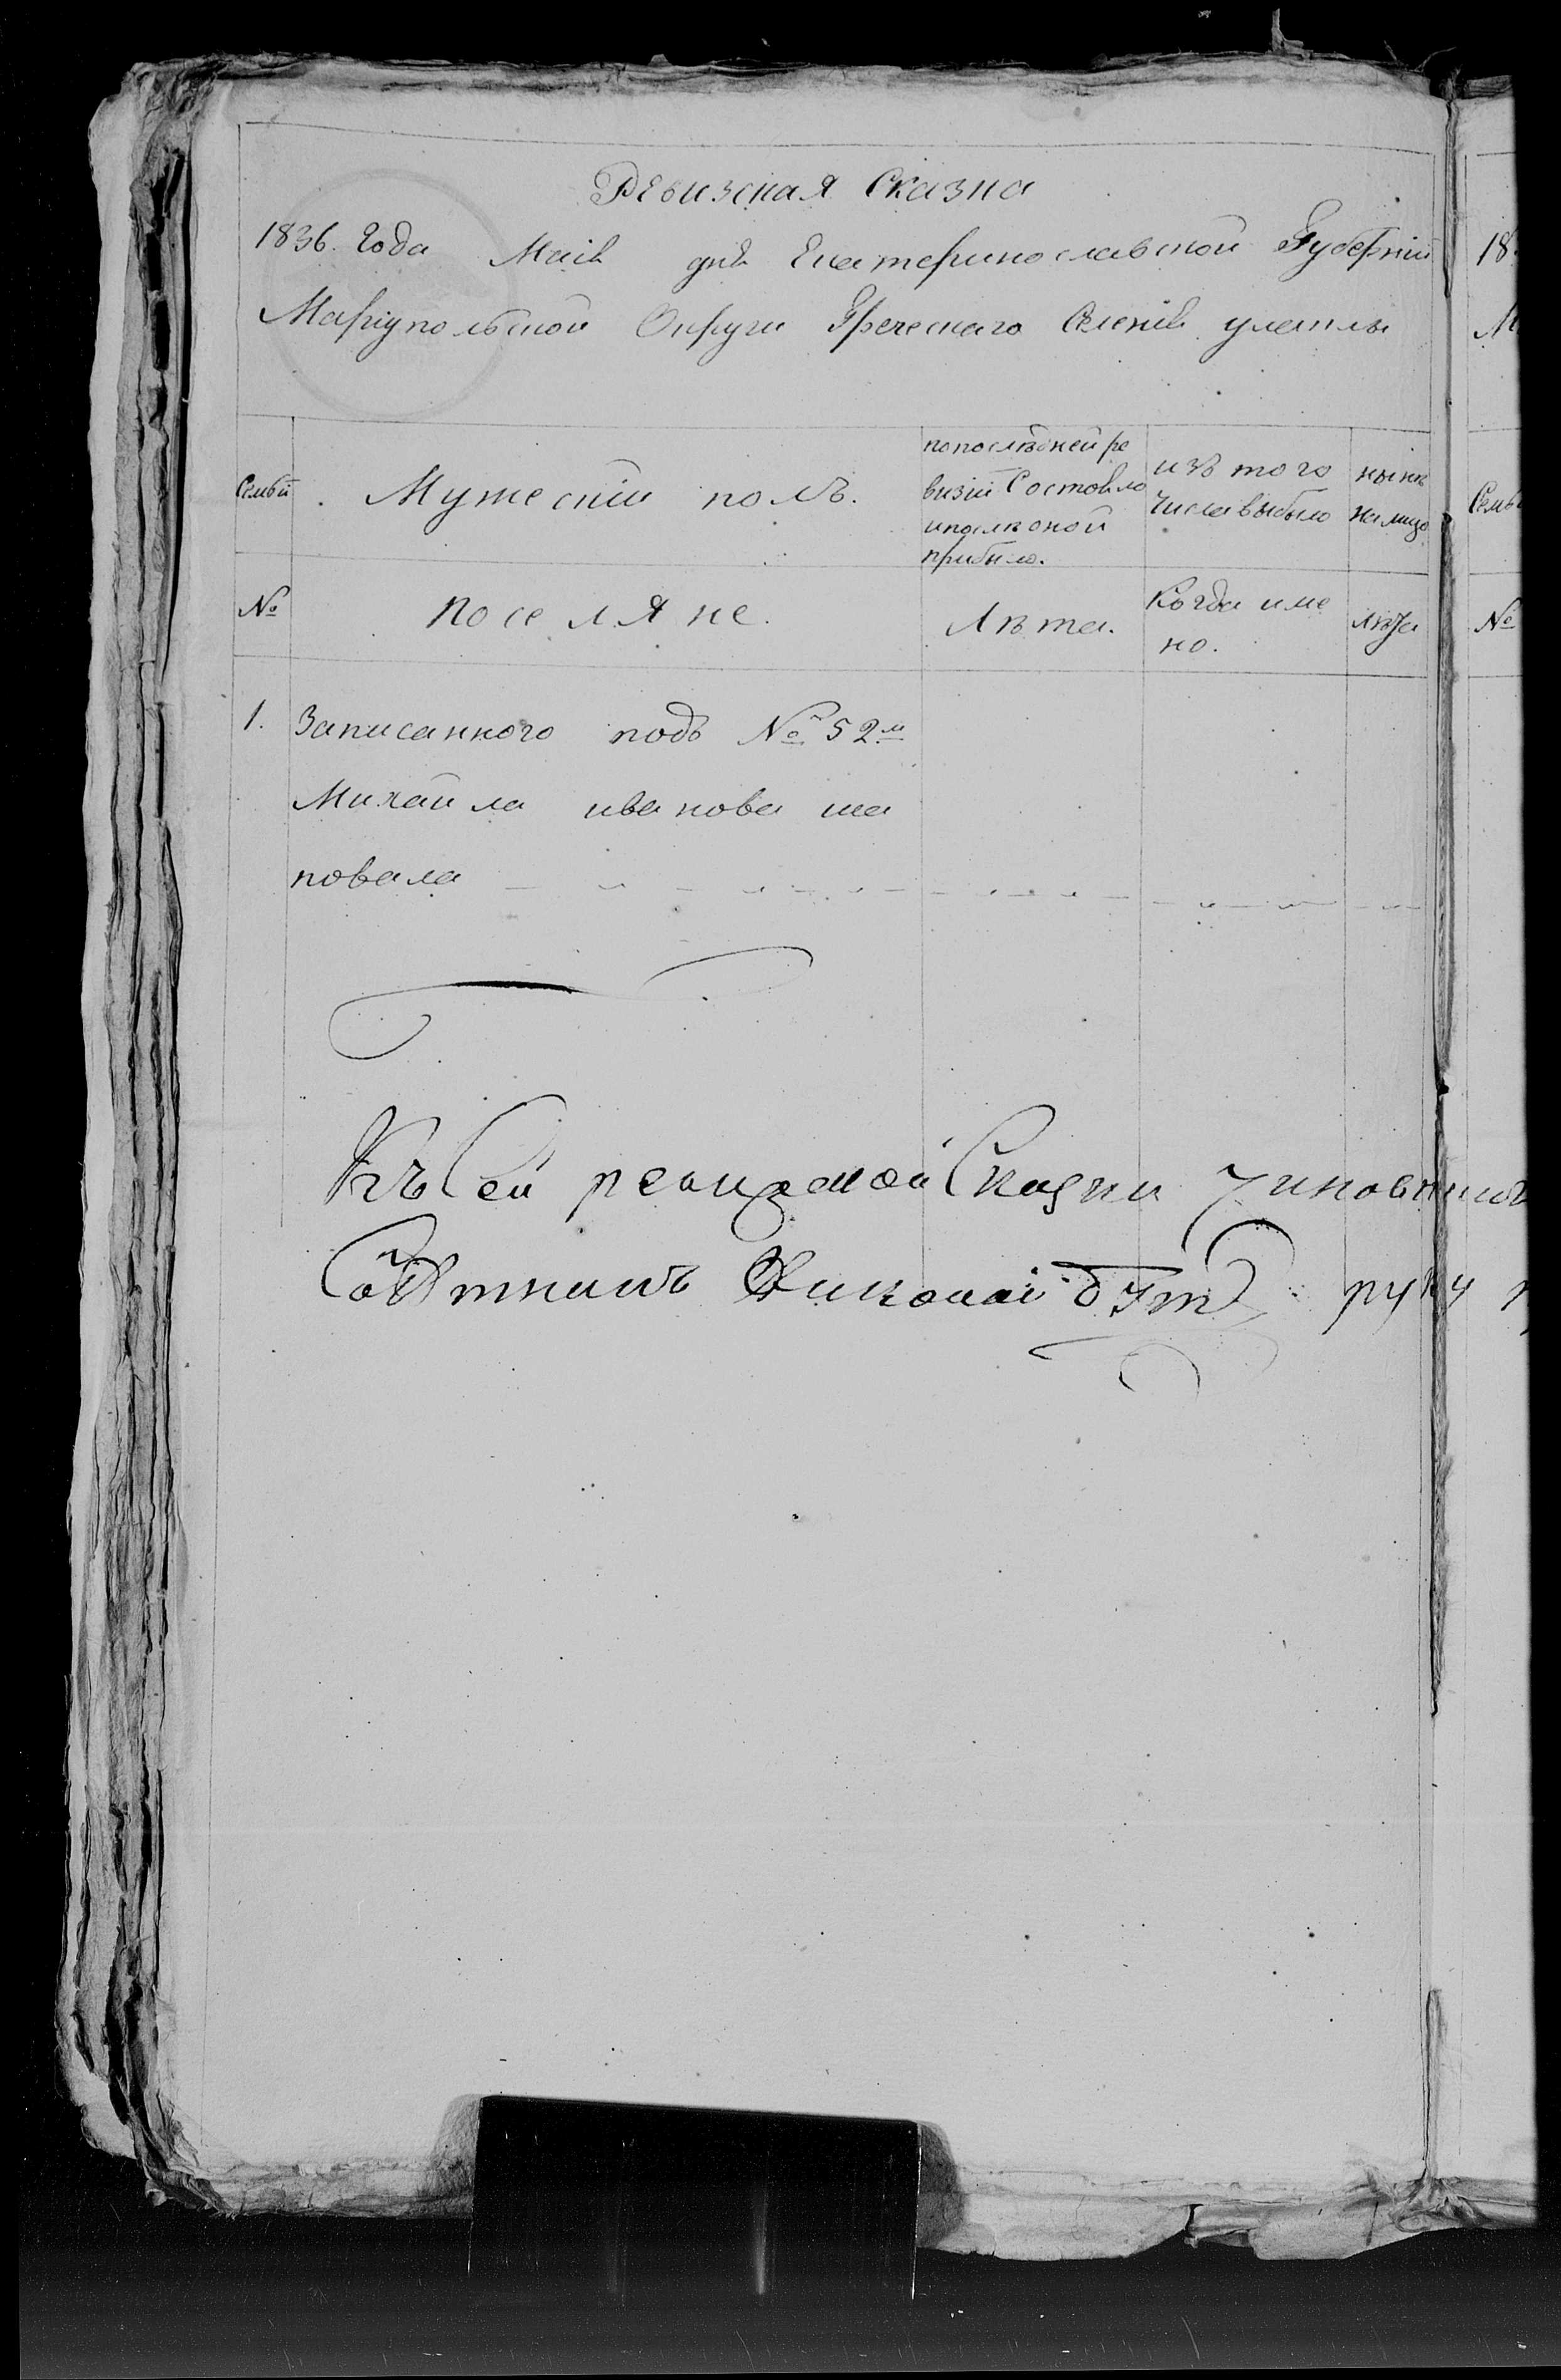 Ревизская Сказка
1836. Года Маія дня Екатеринославской Губерніи
Маріупольской Округи Греческаго Селенія улаклы
Семьи
Мужескій полъ.
попослѣдней ре
визіи Состояло
ипослѣ оной
прибыло.
изъ того
числа выбыло
нынѣ
на лицо
№
поселяне.
Лѣта.
Когда име
но.
лѣта
1. Записанного подъ № 52м
Михайла иванова ша
повала
Къ Сей ревизской Сказки
Николай руку
18
М
Семь
№